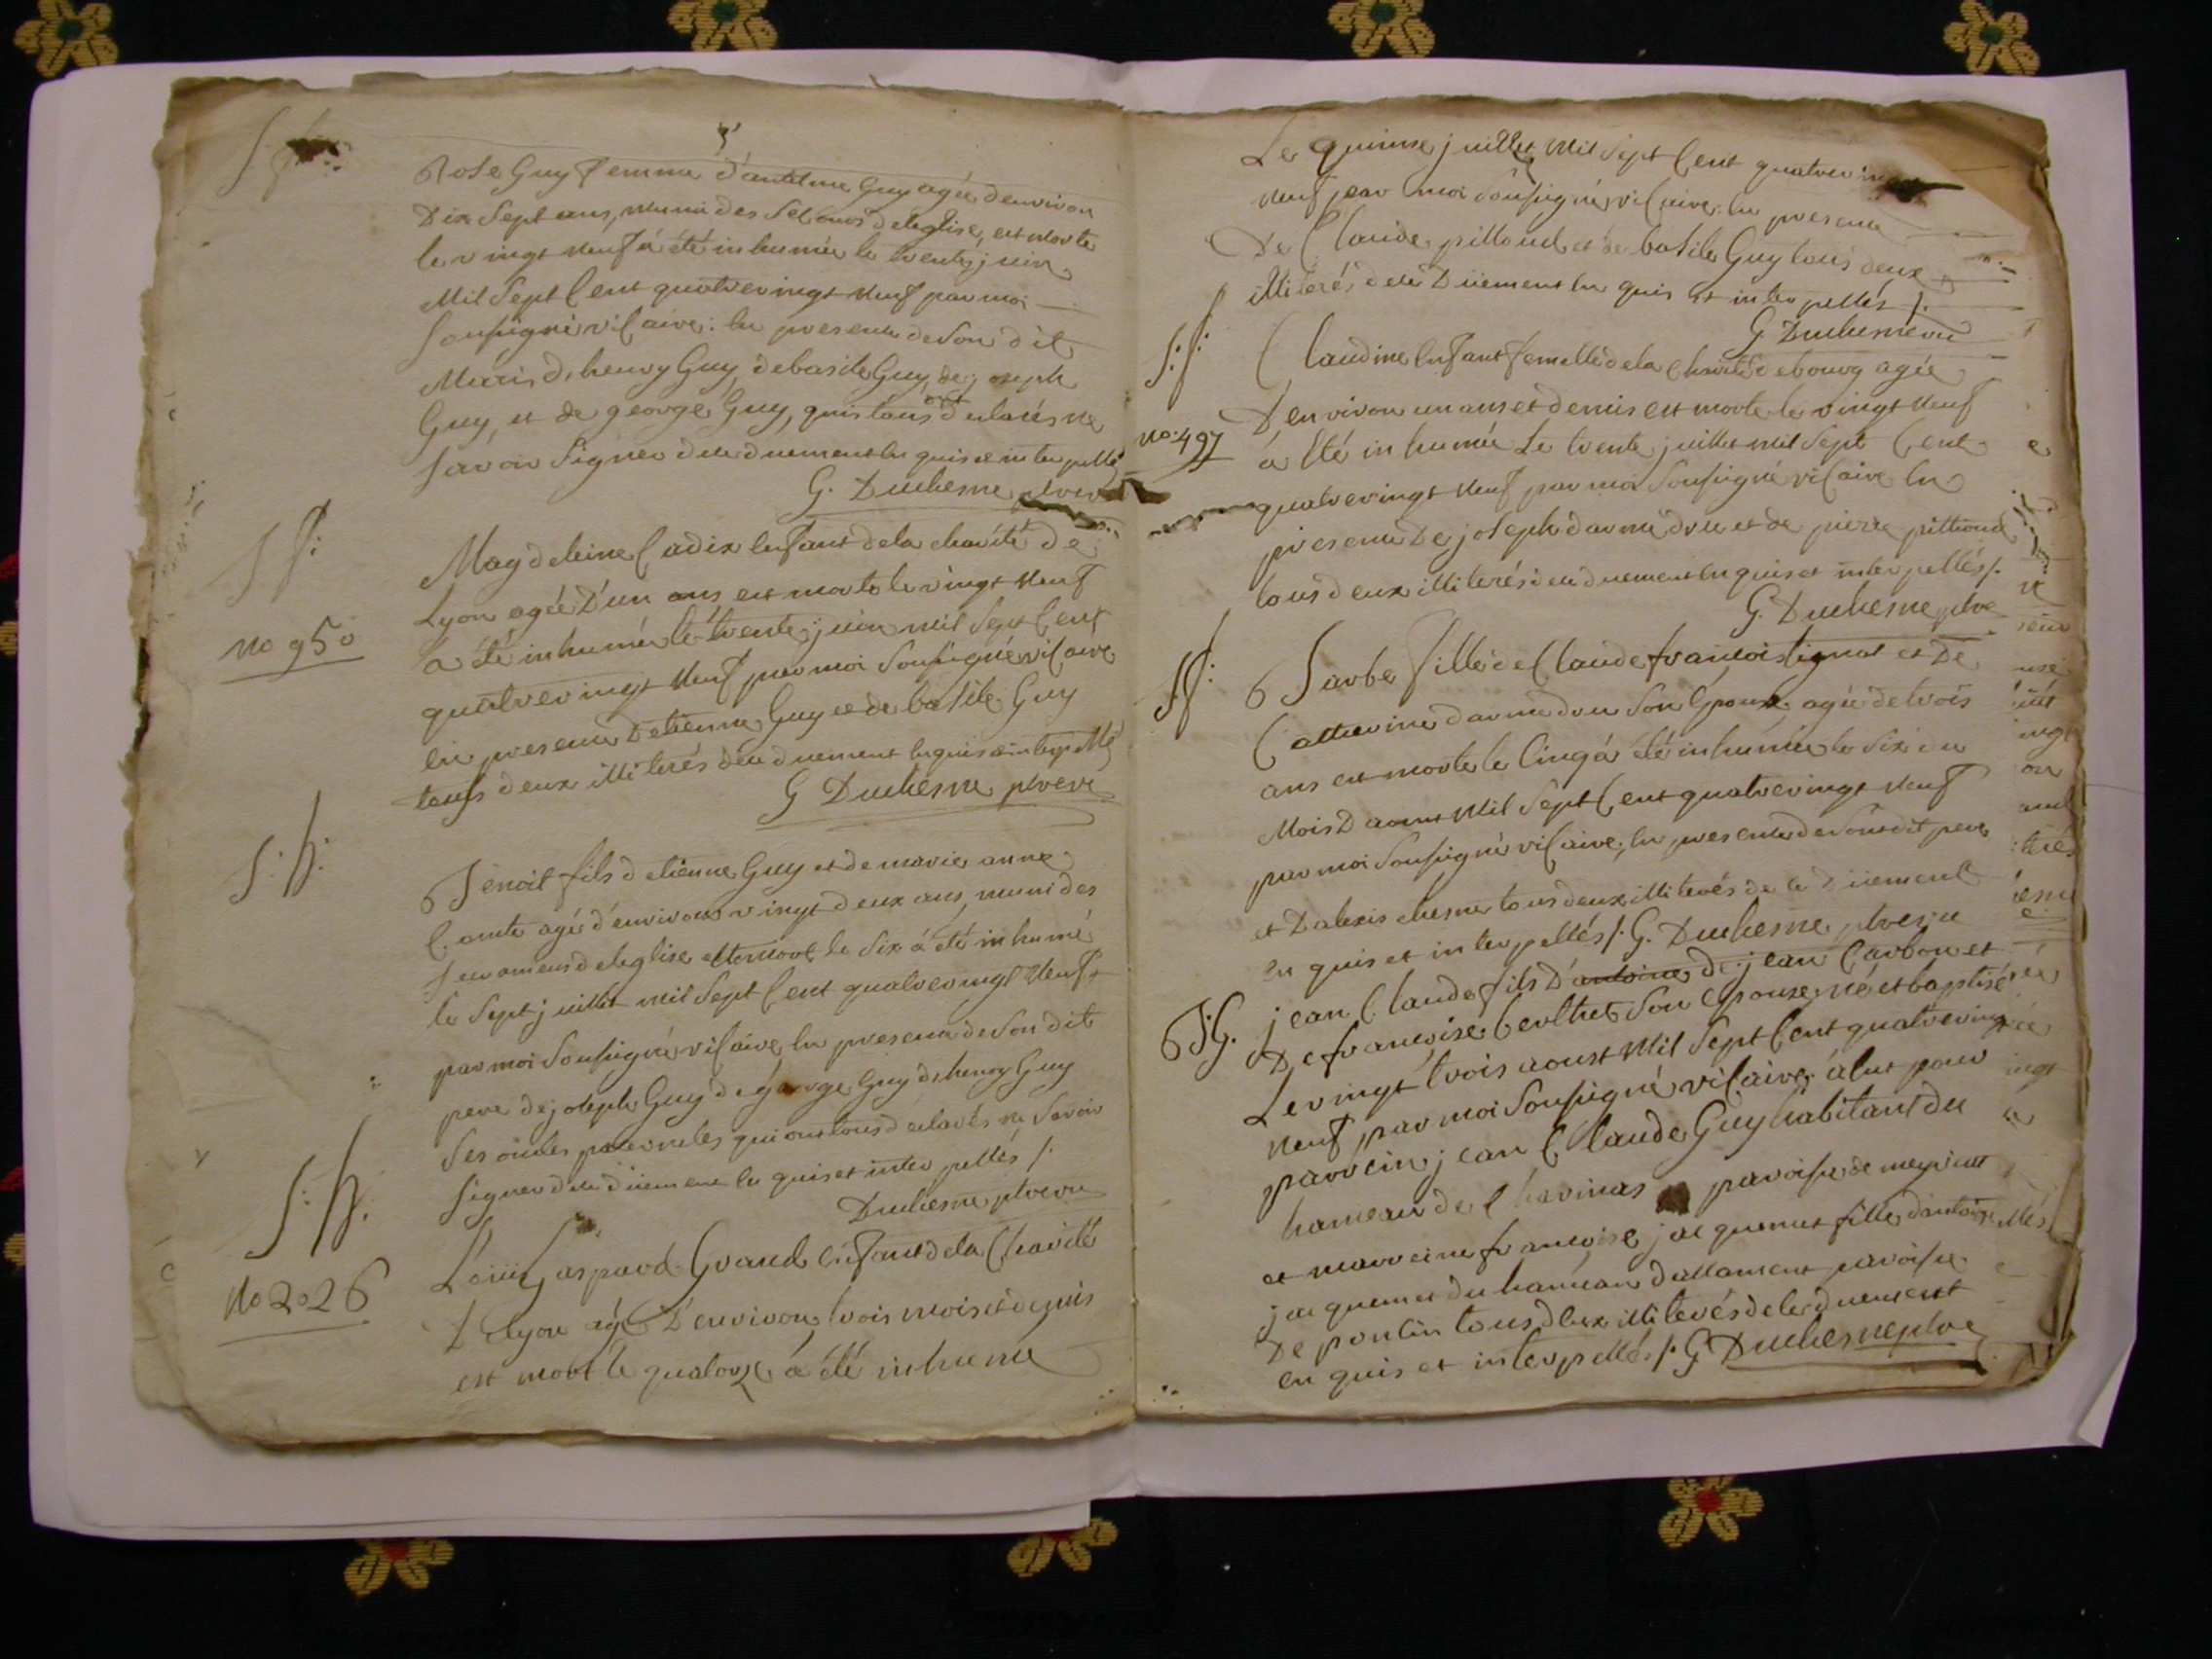 Rose Guy femme d'antelme Guy agée d'environ
Dix Sept ans, muni des Secours de leglise, est morte
le vingt neuf a été inhumée le trente juin
Mil Sept Cent quatrevingt neuf par moi
Soussigné vicaire: En presence de Son dit
Mari, d, henry Guy, de basile Guy, de joseph
Guy, et de george Guy, qui tous ont declarés ne
savoir Signer de ce duement enquis et interpellés
G. Duchesne ptre vre
S f:
Magdeleine Cadix enfant de la charité de
Lyon agée D'un ans est morte le vingt neuf
no 950
a été inhumée le trente juin mil Sept Cent
quatrevingt neuf par moi Soussigné vicaire
en presence D'etienne Guy et de basile Guy
tous deux illiterés de ce duement enquis et interpellés
G Duchesne ptre vre
S: h:
Benoit fils d'etienne Guy et de marie anne
agé d'environ vingt deux ans, muni des
Sacremens de leglise est mort le Six a été inhumé
le Sept juillet mil Sept Cent quatrevingt neuf
par moi Soussigné vicaire, En presence de Son dit
pere de joseph Guy de george Guy d, henry Guy
Ses oncles paternels qui ont tous declarés ne Savoir
Signer de ce düement enquis et interpellés /.
Duchesne ptre vre
S: h:
Gaspard Grand enfant de la Charité
no 2026
D lyon agé D'environ trois mois et demis
est mort le quatorze a été inhumé
Le quinze juillet Mil Sept Cent quatrevingt
neuf par moi Soussigné vicaire: En presence
De Claude pilloud et de basile Guy tous deux
illiterés de ce Düement enquis et interpellés /.
G. Duchesne vre
S: f:
Claudine Enfant femelle de la charité de bourg agée
D'environ un ans et demis est morte le vingt neuf
no: 497
a Eté inhumée Le trente juillet mil Sept Cent
quatrevingt neuf par moi Soussigné vicaire En
presence De joseph et de pierre pilloud
tous deux illiterés de ce duement enquis et interpellés /.
G. Duchesne ptre
S f:
Barbe fille de Claude francois tignat et De
Catherine Son Epouse agée de trois
ans est morte le Cinq a été inhumée le Six du
Mois D'aoust Mil Sept Cent quatrevingt neuf
par moi Soussigné vicaire, En presence de Son dit pere
et D'alexis chesne tous deux illiterés de ce Düement
En quis et interpellés /. G. Duchesne ptre vre
B: G.
jean Claude fils D'antoine De jean Carbon et
De francoise Berthet Son Epouse, né et baptisé
Le vingt trois aoust Mil Sept Cent quatrevingt
neuf, par moi Soussigné vicaire, a eut pour
parrein jean Claude Guy habitant du
hameau de Chavinas paroisse de meyriat
et marreine francoise jacquemet fille d'antoine
jacquemet du hameau d'allement paroisse
De poncin tous deux illiterés de ce duement
enquis et interpellés /. G Duchesne ptre